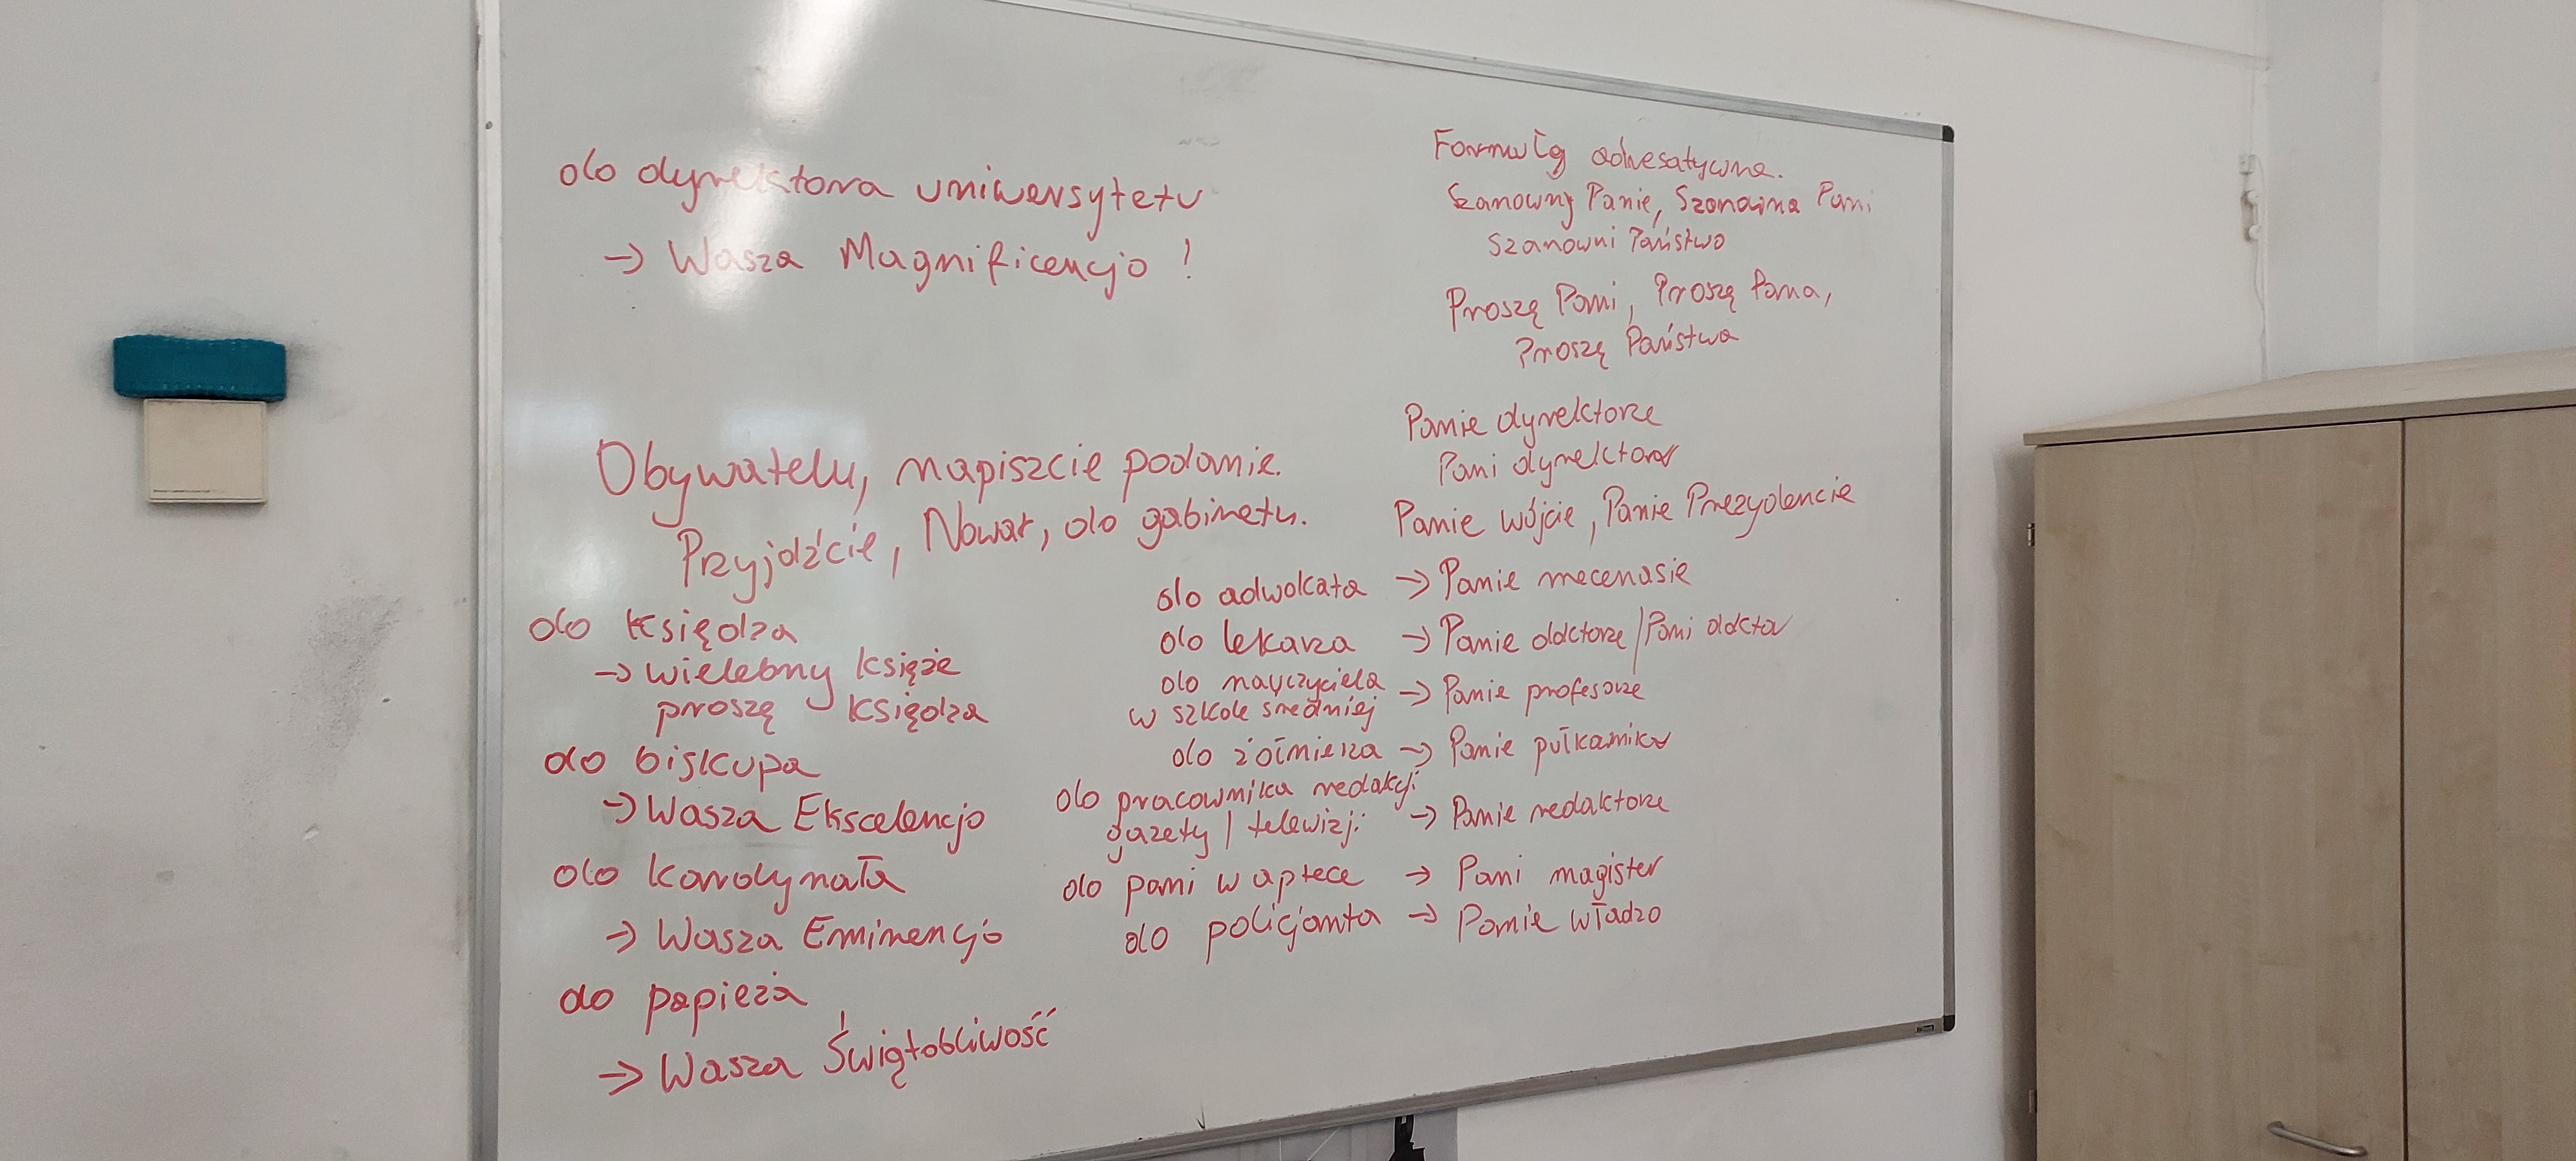 do dyrektora uniwersytetu
→ Wasza Magnificencjo!
Obywatelu, napiszcie podanie.
Przyjdźcie, Nowak, do gabinetu.
do księdza
→ wielebny księże
proszę księdza
do biskupa
→ Wasza Ekscelencjo
do kardynała
→ Wasza Eminencjo
do papieża
→ Wasza Świątobliwość
Formuły adresatywne.
Szanowny Panie, Szanowna Pani
Szanowni Państwo
Proszę Pani, Proszę Pana,
Proszę Państwa
Panie dyrektorze
Pani dyrektor
Panie wójcie, Panie Prezydencie
do adwokata → Panie mecenasie
do lekarza → Panie doktorze / Pani doktor
do nauczyciela → Panie profesorze
w szkole średniej
do żołnierza → Panie pułkowniku
do pracownika redakcji
gazety / telewizji → Panie redaktorze
do pani w aptece → Pani magister
do policjanta → Panie władzo